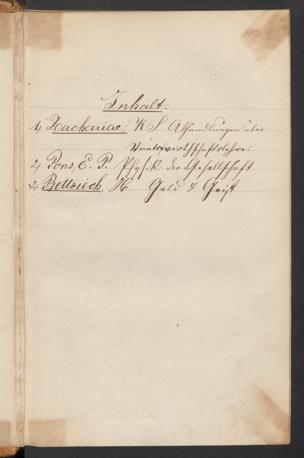 Inhalt:
1) Zachariae, K S Abhandlungen über
Staatswirthschaftslehre.
2) Pons, E. P. Physik der Gesellschaft
3) Bettziech, H Geld & Geist